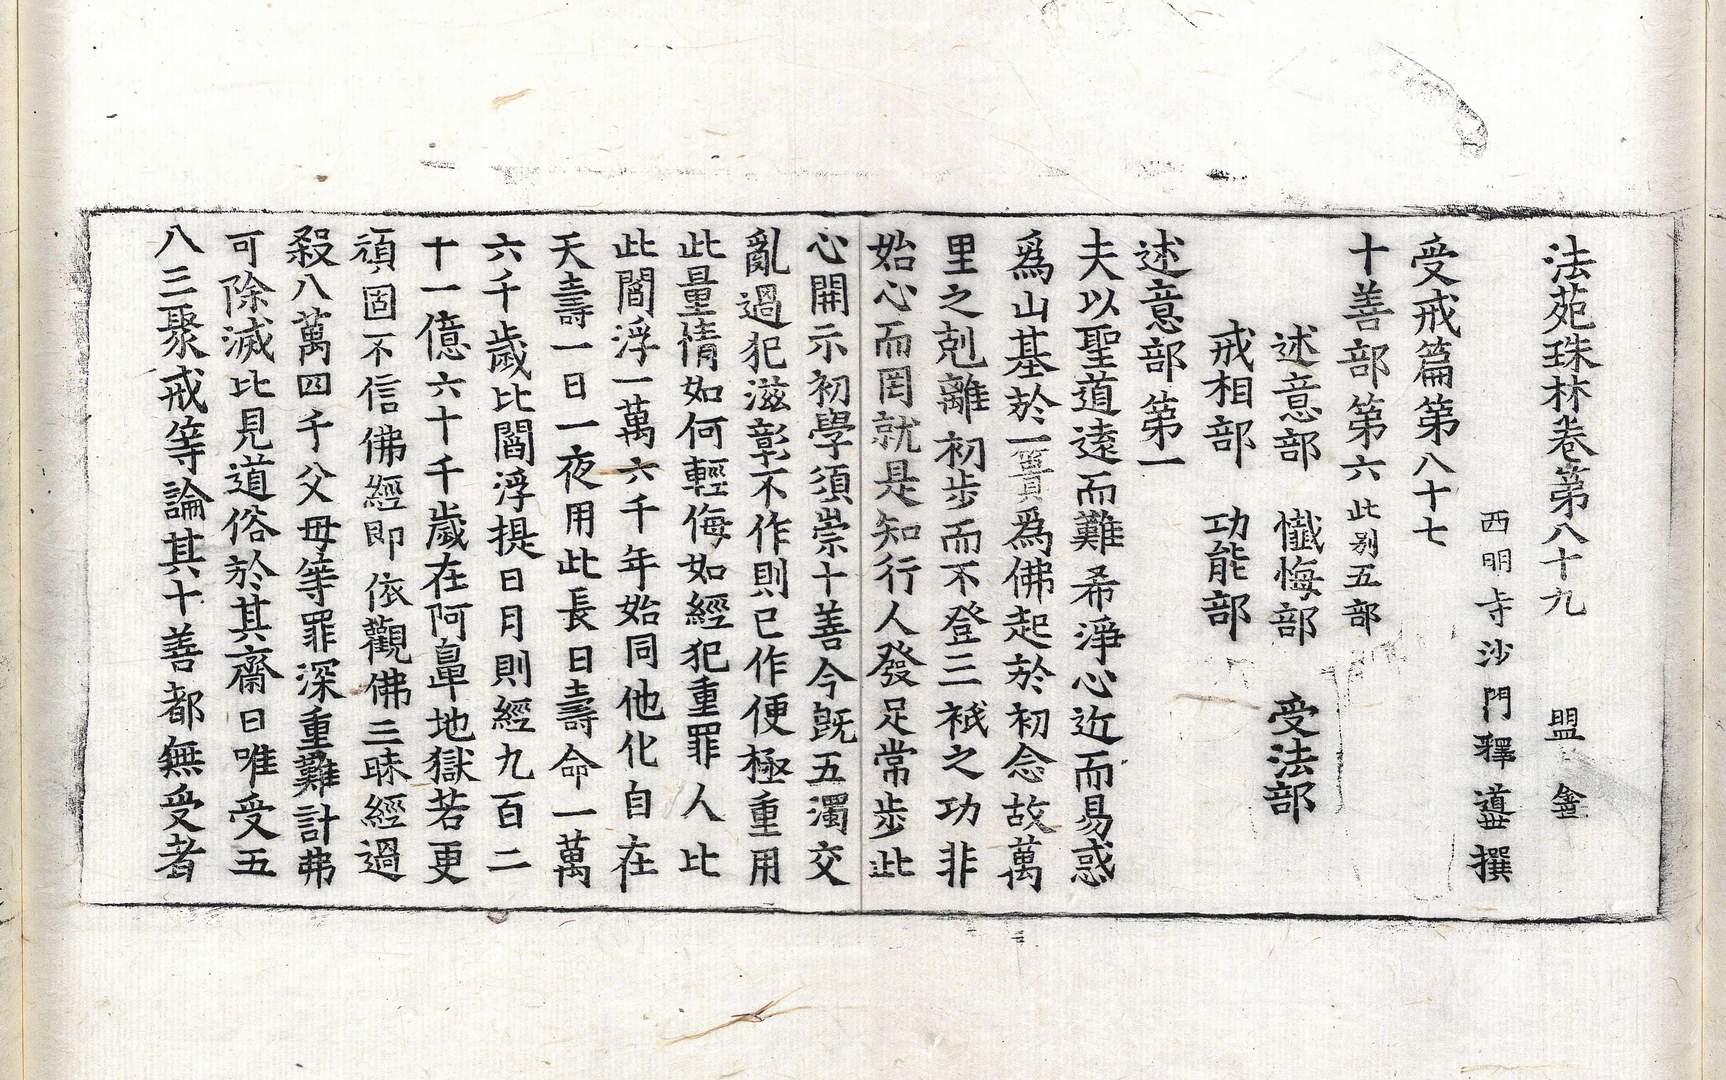 法苑珠林卷第八十九　盟
西明寺沙門釋道世撰
受戒篇第八十七
十善部第六此別五部
述意部　懺悔部　受法部
戒相部　功能部
述意部第一
夫以聖道遠而難希淨心近而易惑
爲山基於一簣爲佛起於初念故萬
里之剋離初步而不登三祇之功非
始心而罔就是知行人發足常步此
心開示初學須崇十善今旣五濁交
亂過犯滋彰不作則已作便極重用
此量情如何輕侮如經犯重罪人比
此閻浮一萬六千年始同他化自在
天壽一日一夜用此長日壽命一萬
六千歲比閻浮提日月則經九百二
十一億六十千歲在阿鼻地獄若更
頑固不信佛經即依觀佛三昧經過
殺八萬四千父母等罪深重難計弗
可除滅比見道俗於其齋日唯受五
八三聚戒等論其十善都無受者